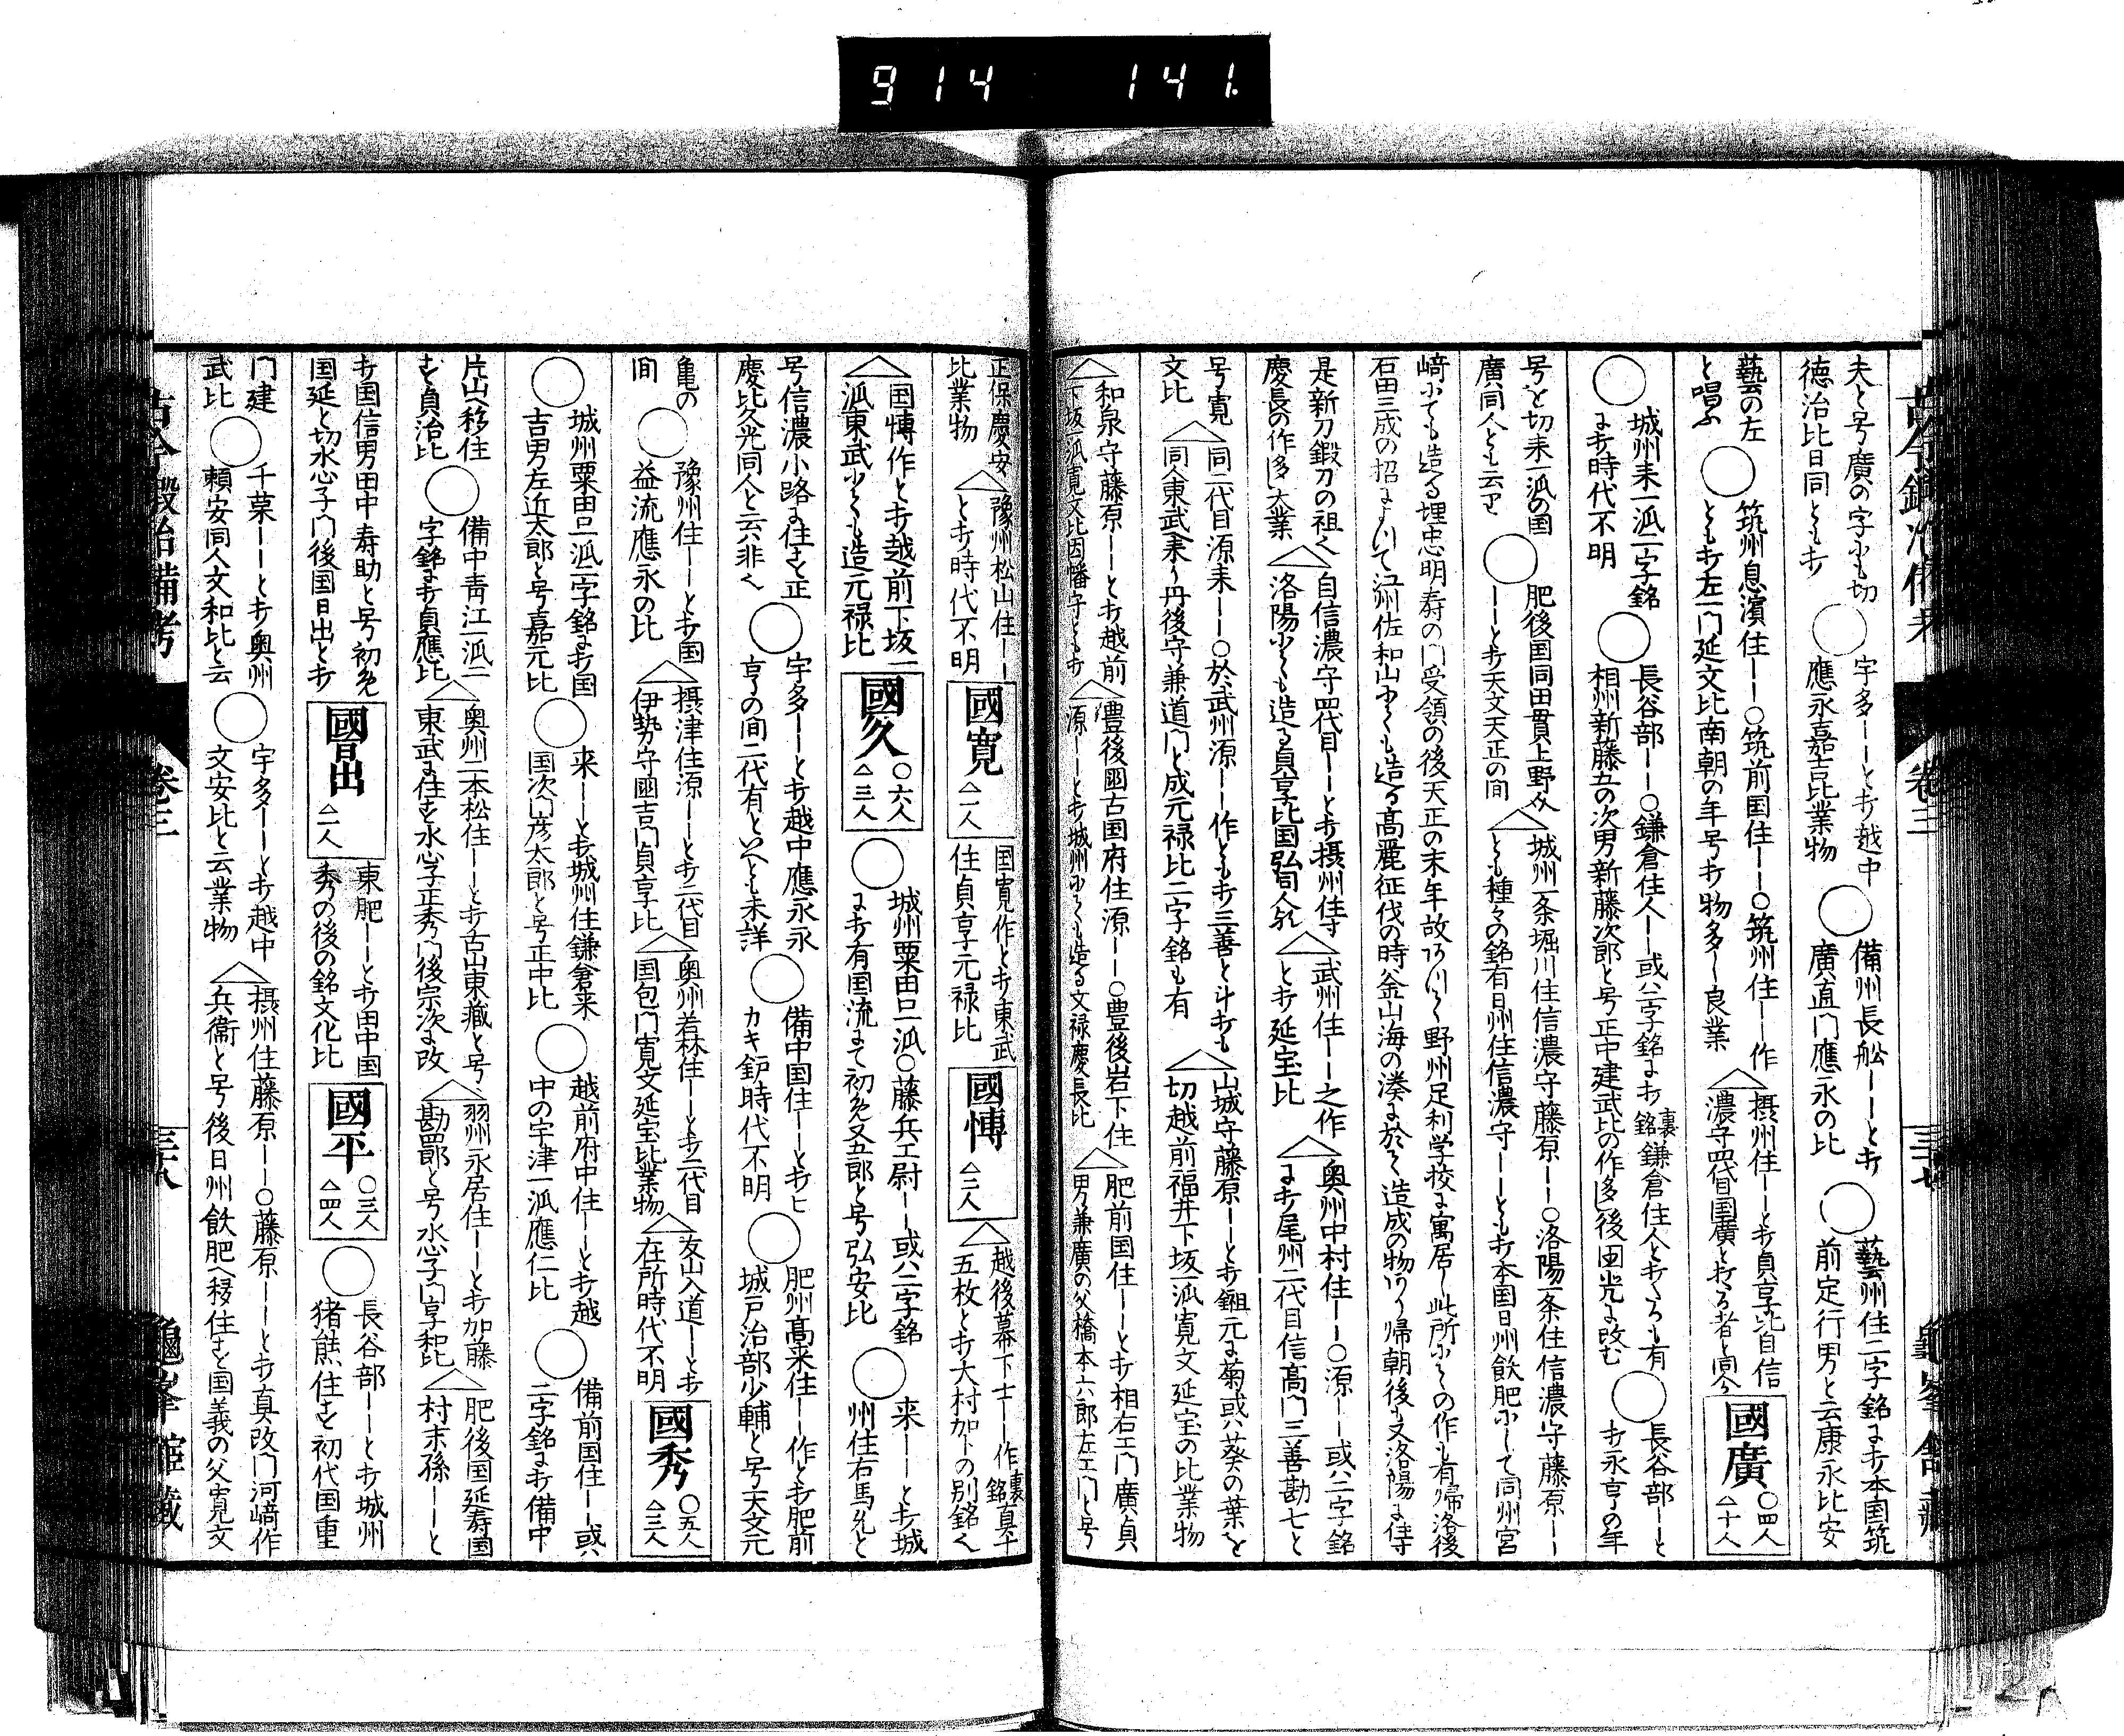 914 141.
夫と号廣の字にも切
徳治比日同ともオ
宇多ーーとオ越中
應永嘉吉比業物
備州長船ーーとオ
廣直門應永の比
藝州住二字銘にオ本国筑
前定行男と云康永比安
藝の左
と唱ふ
筑州息濱住ーー○筑前国住ーー○筑州住ーー作
ともオ左一門延文比南朝の年号オ物多し良業
摂州住ーーとオ貞享比自信
濃守四代目国廣とオる者と同人
國廣 ○四人 △十人
城州来一派二字銘
にオ時代不明
長谷部ーー○鎌倉住人ーー或ハ二字銘にオ裏銘鎌倉住人とオるも有
相州新藤五の次男新藤次郎と号正中建武比の作多し後国光に改む
長谷部ーーと
オ永享の年
号を切来一派の国
廣同人とも云り
肥後国同田貫上野介
ーーとオ天文天正の間
城州一条堀川住信濃守藤原ーー○洛陽一条住信濃守藤原ーー
とも種々の銘有日州住信濃守ーーともオ本国日州飲肥にして同州宮
﨑にても造る埋忠明寿の門受領の後天正の末年故ありて野州足利学校に寓居し此所にての作も有帰洛後
石田三成の招によつて江州佐和山にても造る髙麗征伐の時釜山海の湊に於て造成の物あり帰朝後も又洛陽に住
是新刀鍛刀の祖也
慶長の作多し大業
自信濃守四代目ーーとオ摂州住
洛陽にても造る貞享比国弘同人
武州住ーー之作
とオ延宝比
奥州中村住ーー○源ーー或ハ二字銘
にオ尾州二代目信髙門三善勘七と
号寛
文比
同二代目源来ーー○於武州源ーー作ともオ三善と斗オも
同人東武来り丹後守兼道門と成元禄比二字銘も有
山城守藤原ーーとオ鎺元に菊或ハ葵の葉を
切越前福井下坂一派寛文延宝の比業物
和泉守藤原ーーとオ越前
下坂一派寛文比因幡守ともオ
豊後國古国府住源ーー○豊後岩下住
源ーーとオ城州にても造る文禄慶長比
肥前国住ーーとオ相右エ門廣貞
男兼廣の父橋本六郎左エ門と号
古今鍛冶備考 巻三 三十七 龜峯館藏
正保慶安
比業物
豫州松山住ーー
とオ時代不明
國寛 △一人
国寛作とオ東武
住貞享元禄比
國愽 △二人
越後幕下士ーー作裏銘真十
五枚とオ大村加卜の別銘也
国愽作とオ越前下坂一
派東武にても造元禄比
國久 ○六人 △三人
城州粟田口一派○藤兵エ尉ーー或ハ二字銘
にオ有国流にて初め又五郎と号弘安比
来ーーとオ城
州住右馬允と
号信濃小路に住す正
慶比久光同人と云非也
宇多ーーとオ越中應永永
享の間二代有といへとも未詳
備中国住ーーとオヒ
カキ鈩時代不明
肥州髙来住ーー作とオ肥前
城戸治部少輔と号天文元
亀の
間
豫州住ーーとオ国
益流應永の比
摂津住源ーーとオ二代目
伊勢守國吉門貞享比
奥州若林住ーーとオ二代目
国包門寛文延宝比業物
友山入道ーーとオ
在所時代不明
國秀 ○五人 △三人
城州粟田口一派二字銘にオ国
吉男左近太郎と号嘉元比
来ーーとオ城州住鎌倉来
国次門彦太郎と号正中比
越前府中住ーーとオ越
中の宇津一派應仁比
備前国住ーー或ハ
二字銘にオ備中
片山へ移住
す貞治比
備中青江一派二
字銘にオ貞應比
奥州二本松住ーーとオ古山東藏と号
東武に住す水心子正秀門後宗次に改
羽州永居住ーーとオ加藤
勘四郎と号水心子門享和比
肥後国延寿国
村末孫ーーと
オ国信男田中寿助と号初め
国延と切水心子門後国日出とオ
國日出 △一人
東肥ーーとオ田中国
秀の後の銘文化比
國平 ○三人 △四人
長谷部ーーとオ城州
猪熊住す初代国重
門建
武比
千菓ーーとオ奥州
頼安同人文和比と云
宇多ーーとオ越中
文安比と云業物
摂州住藤原ーー○藤原ーーとオ真改門河﨑作
兵衞と号後日州飲肥へ移住す国義の父寛文
古今鍛冶備考 巻三 三十八 龜峯館藏